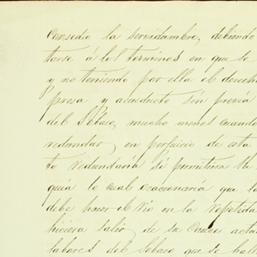 Concedio la servidumbre, debiendo
tarse á los terminos en que se
y no teniendo por ella el derecho
presa y acueducto sin previa
del Sobase, mucho menos cuando
redundar, en perjuicio de esta
to redundaria si permitiera
quia lo cual ocasionaria que
debe hacer el rio en la repetida
hiciera salir de su cauce actual
labores del Sobase que se hallan